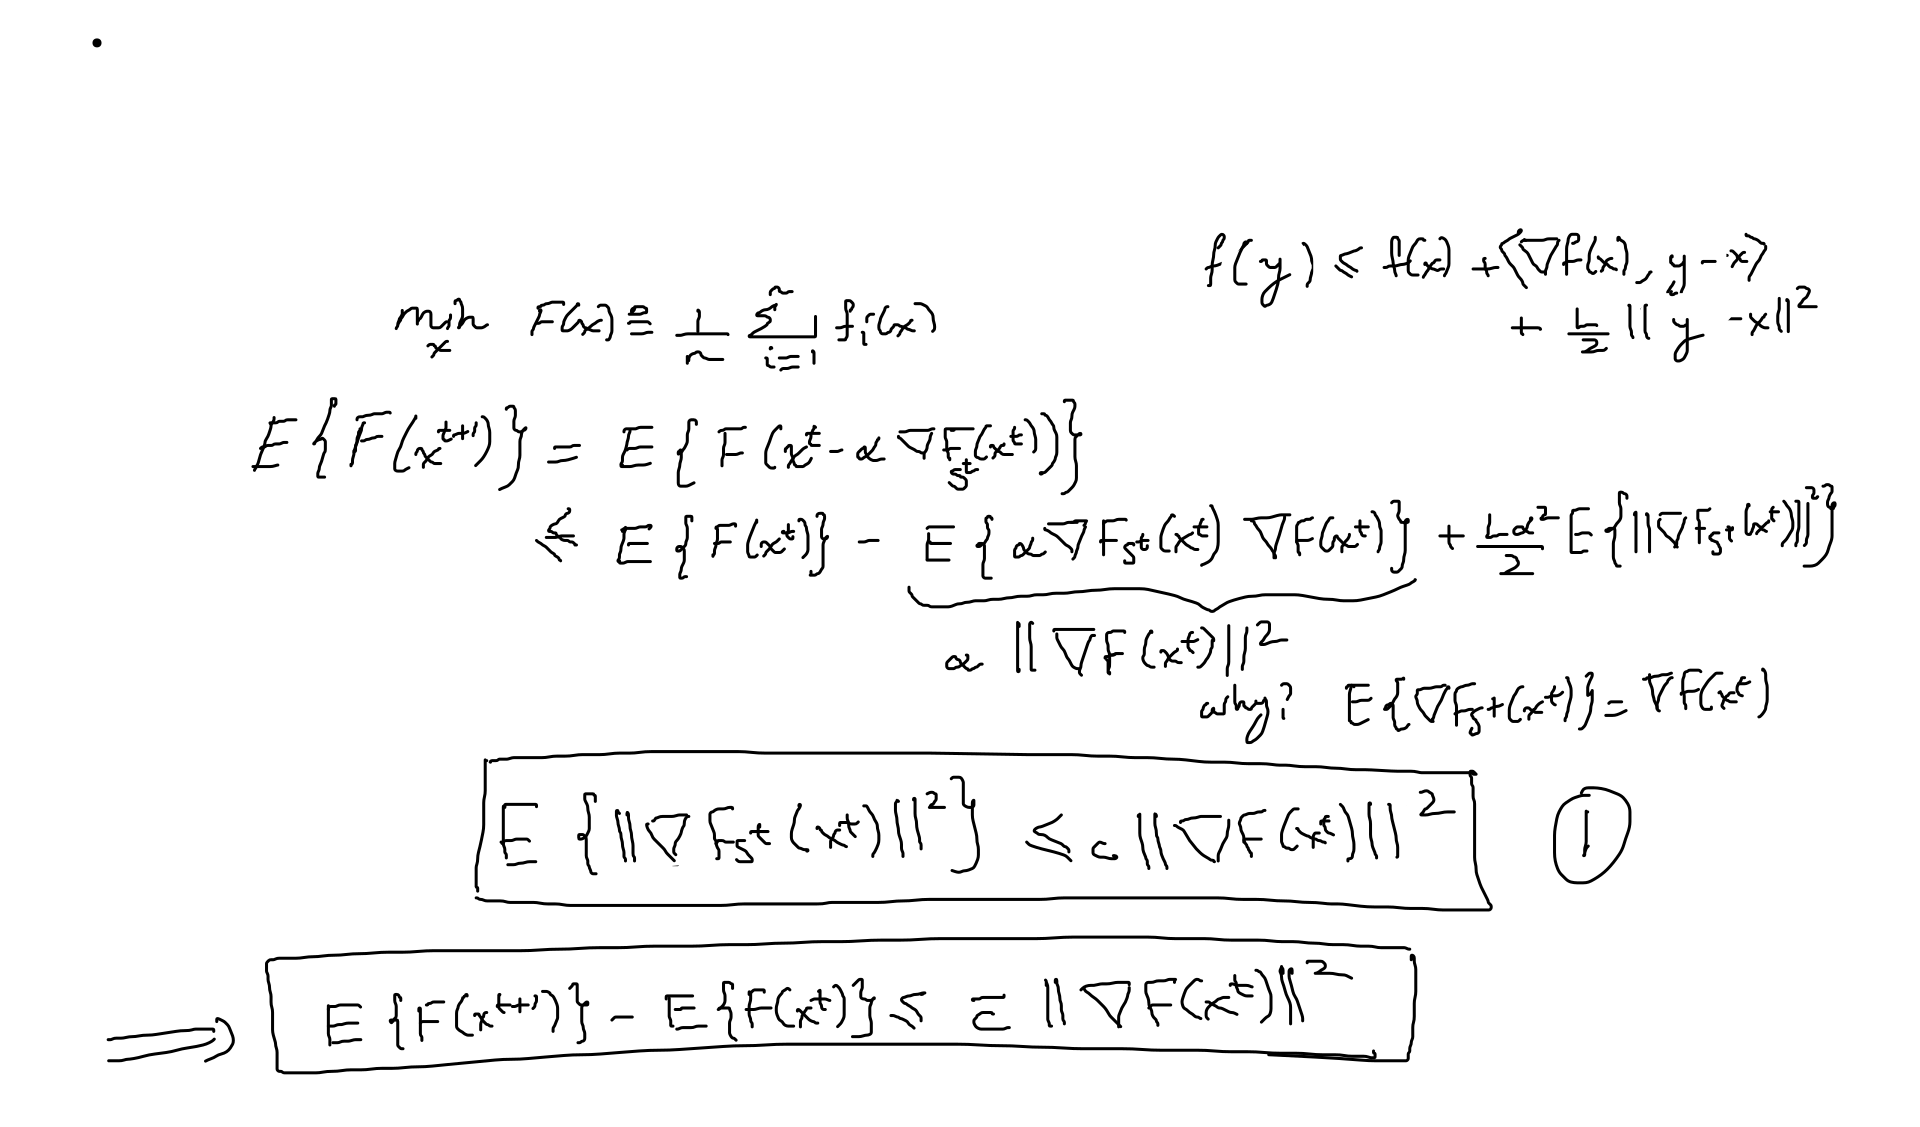 f(y) ≤ f(x) + ⟨∇f(x), y - x⟩
+ L/2 || y - x ||²
min_x F(x) ≡ 1/n ∑_{i=1}^n f_i(x)
E{F(x^{t+1})} = E{F(x^t - α∇F_{S^t}(x^t))}
≤ E{F(x^t)} - E{α∇F_{S^t}(x^t) ∇F(x^t)} + Lα²/2 E{||∇F_{S^t}(x^t)||²}
α ||∇F(x^t)||²
why? E{∇F_{S^t}(x^t)} = ∇F(x^t)
E{||∇F_{S^t}(x^t)||²} ≤ c ||∇F(x^t)||² ①
⟹ E{F(x^{t+1})} - E{F(x^t)} ≤ c̄ ||∇F(x^t)||²